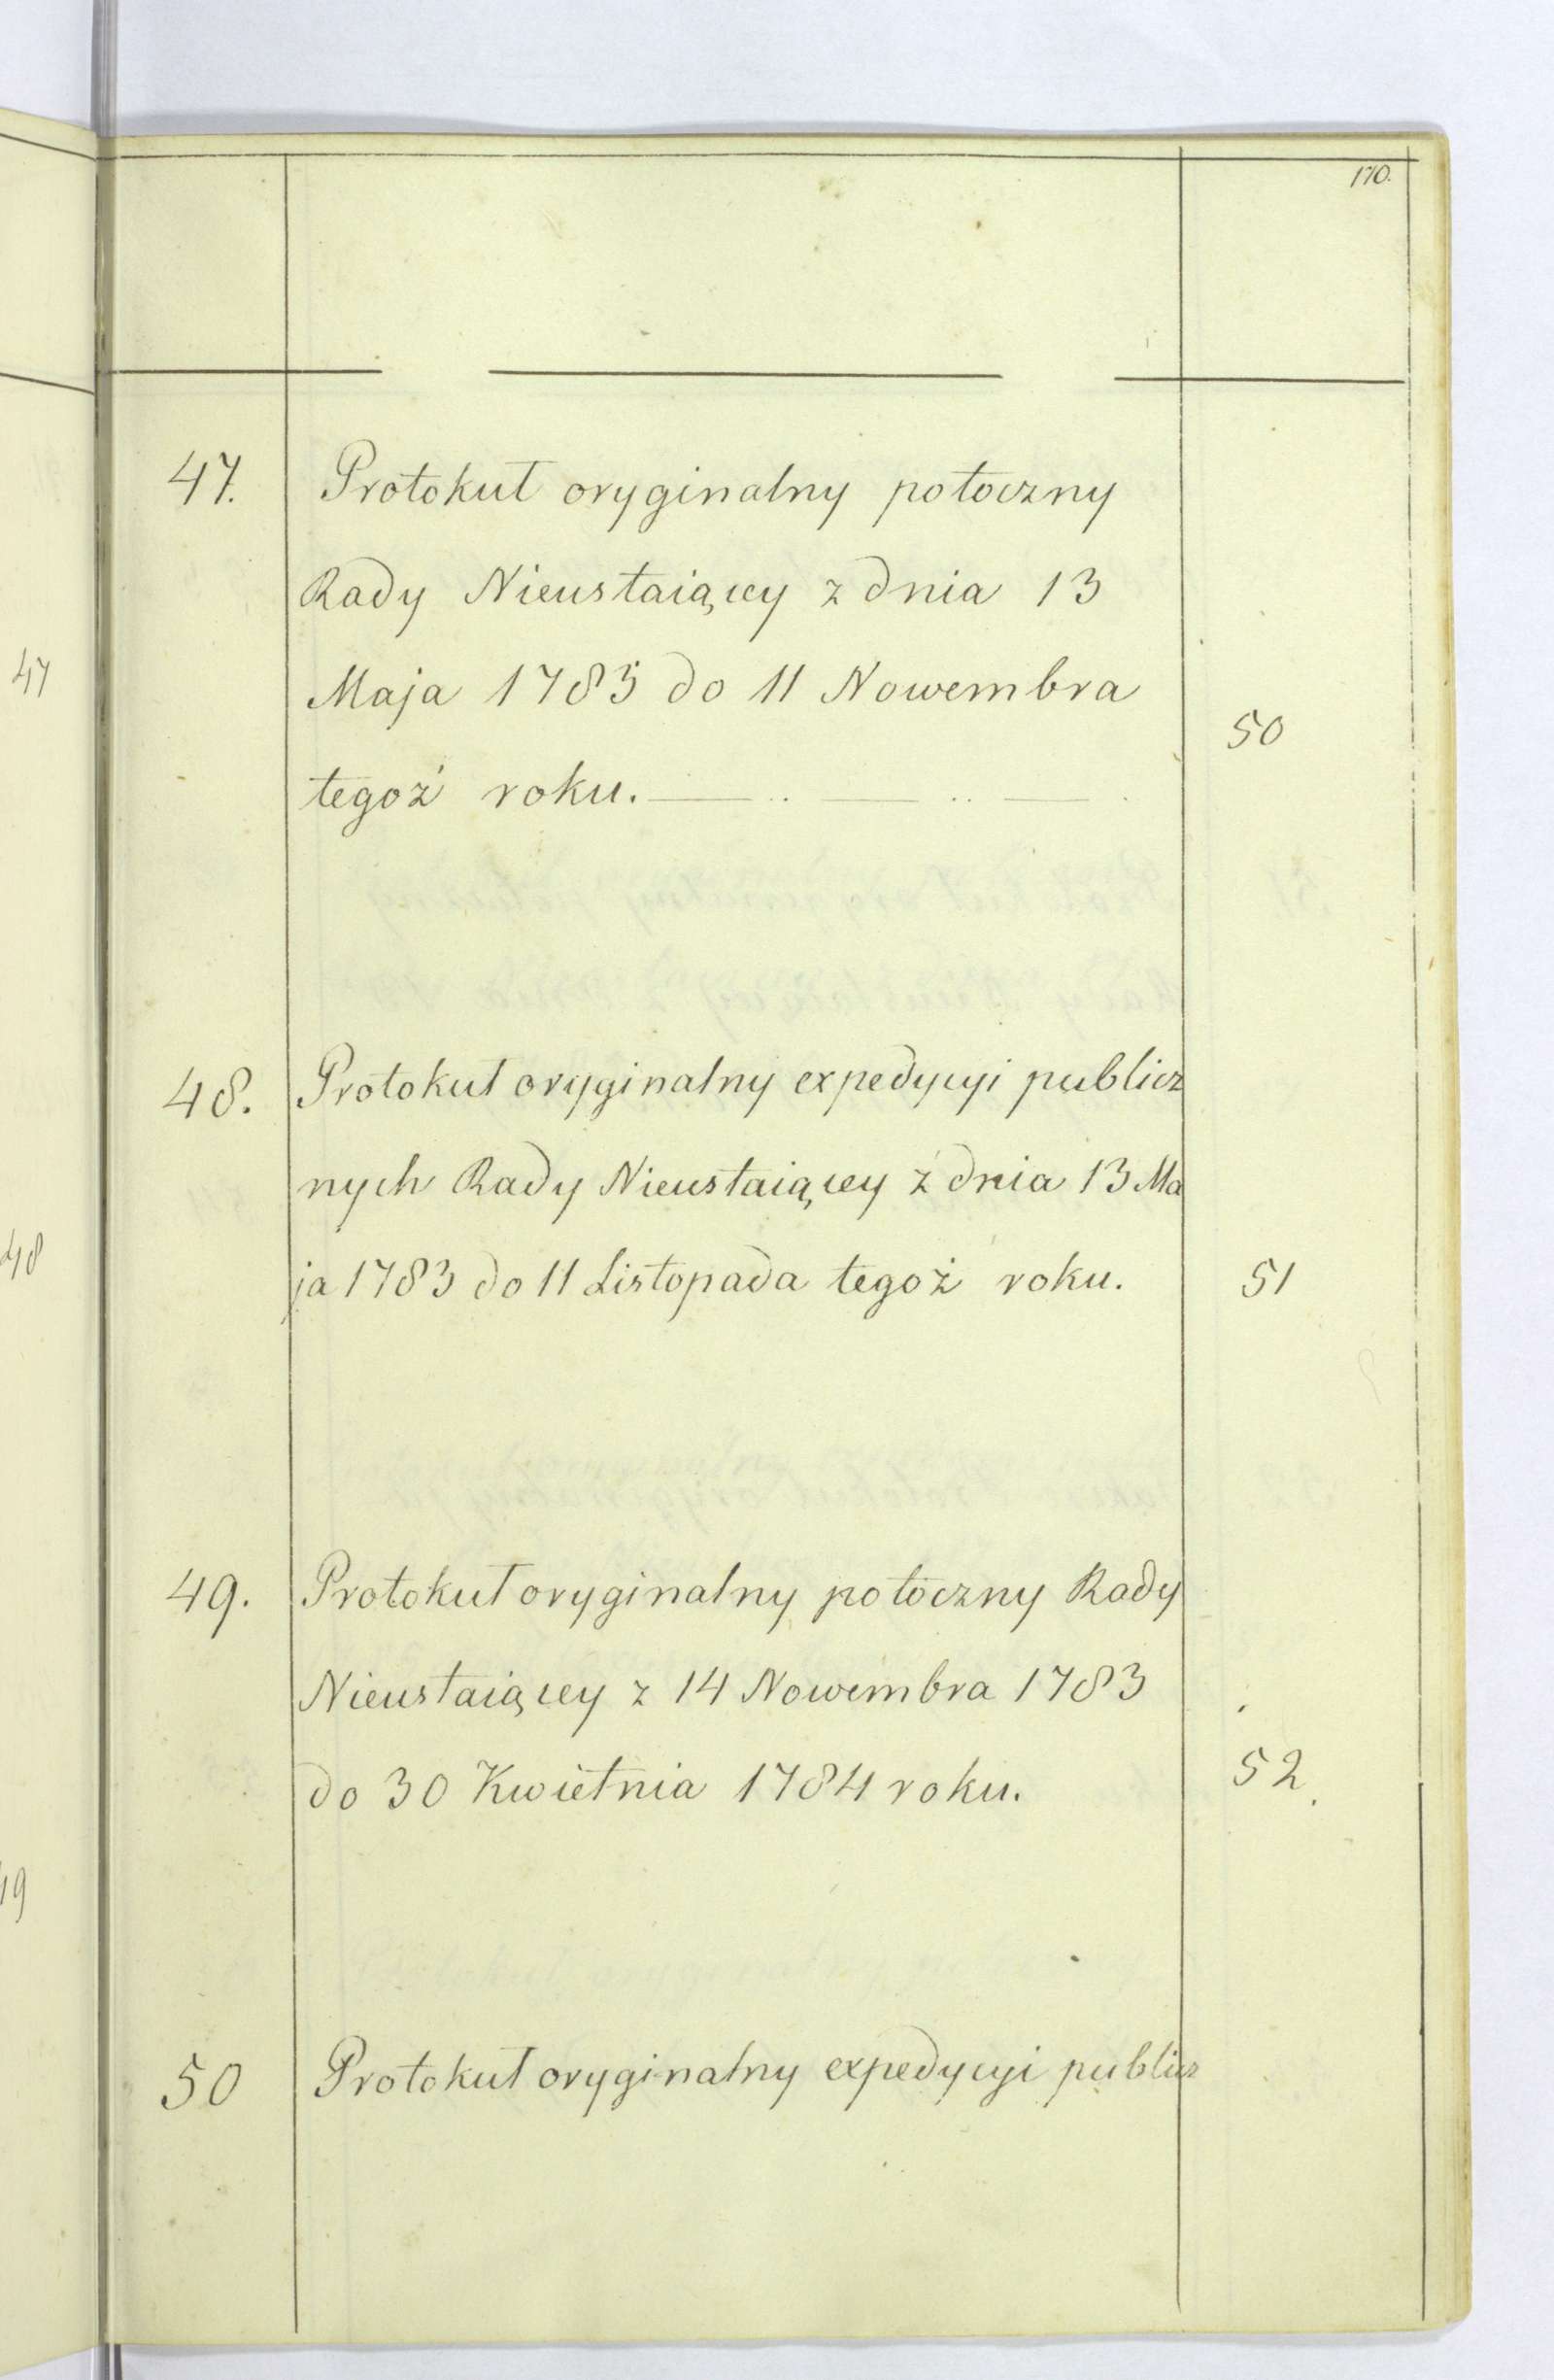 170.
47. Protokuł oryginalny potoczny
Rady Nieustaiącey z dnia 13
Maja 1783 do 11 Nowembra
50
tegoż roku.
48. Protokuł oryginalny expedycyi publicz
nych Rady Nieustaiącey z dnia 13 Ma
ja 1783 do 11 Listopada tegoż roku. 51
49. Protokuł oryginalny potoczny Rady
Nieustaiącey z 14 Nowembra 1783
do 30 Kwietnia 1784 roku. 52.
50 Protokuł oryginalny expedycyi publicz
47
48
49